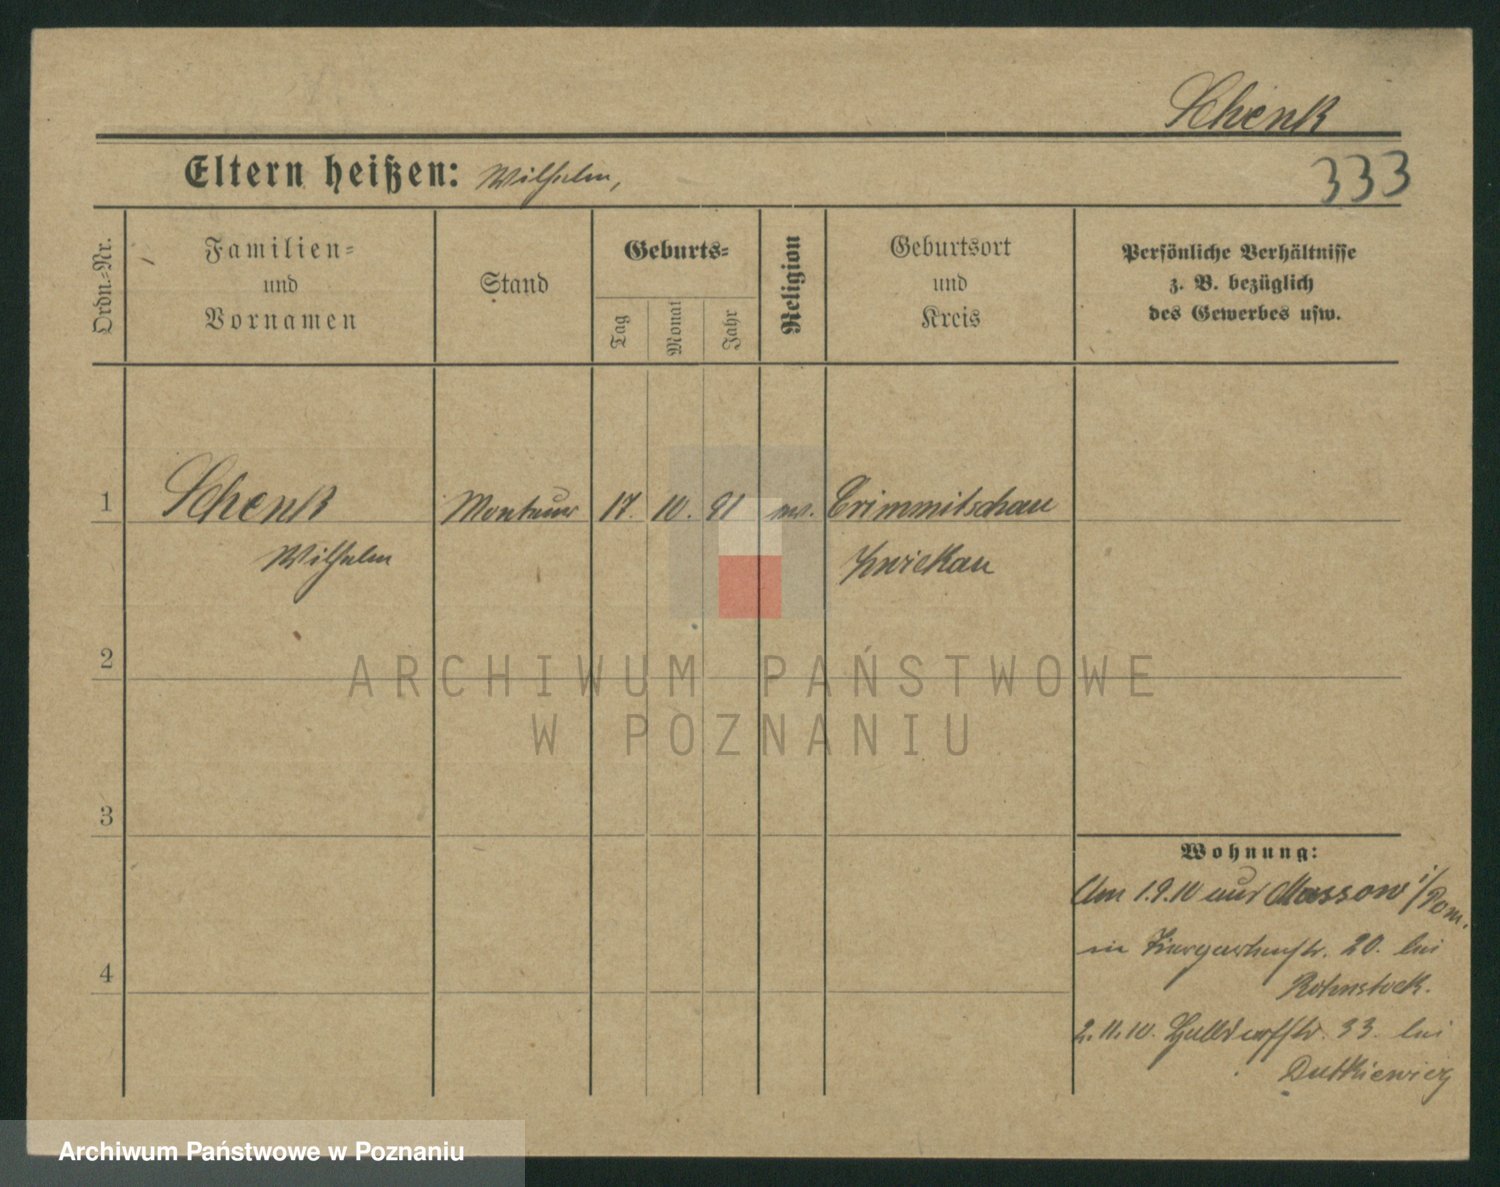 Schenk
Eltern heißen: Wilhelm,
333
Ordn.-Nr.
Familien-
und
Vornamen
Stand
Geburts-
Tag
Monat
Jahr
Religion
Geburtsort
und
Kreis
Persönliche Verhältnisse
z. B. bezüglich
des Gewerbes usw.
1 Schenk Monteur 17. 10. 91 ev. Crimmitschau
Wilhelm Zwickau
2
ARCHIWUM PAŃSTWOWE
W POZNANIU
3
Wohnung:
Am 1.9.10 aus Massow i/Pom.
in Tiergartenstr. 20. bei
4
Rohnstock.
2.11.10. 33. bei
Dutkiewicz
Archiwum Państwowe w Poznaniu